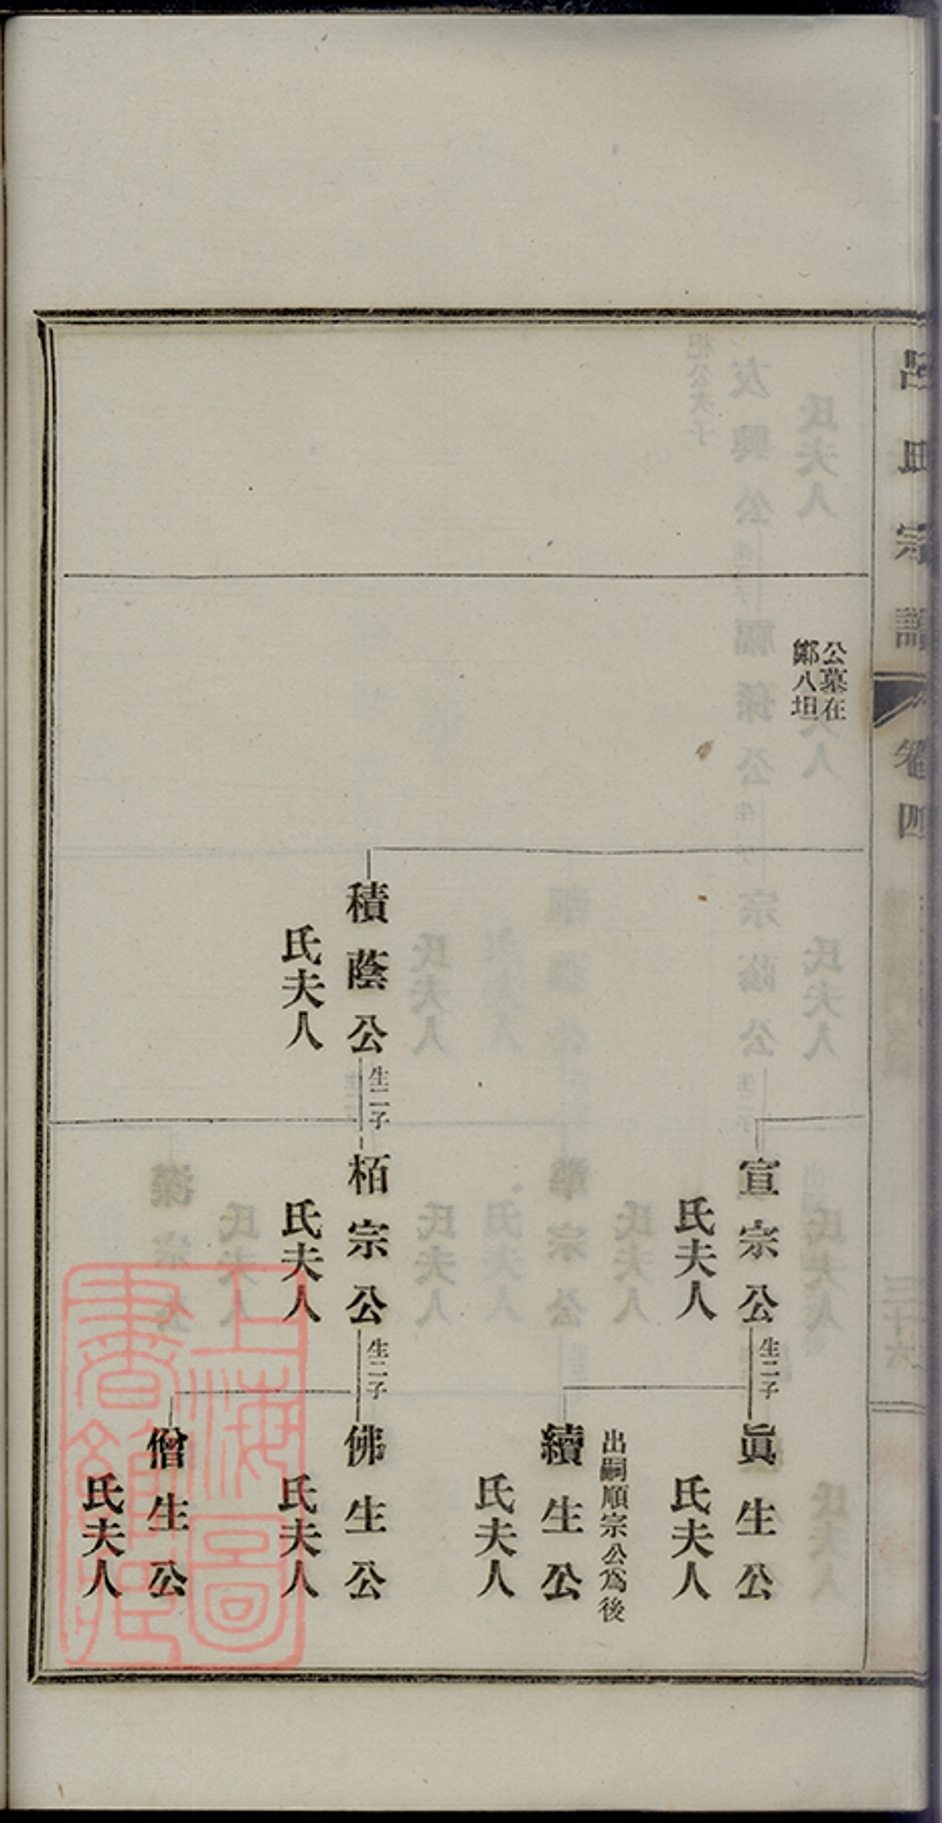 呂氏宗譜
卷四
公墓在
鄭八坦
積蔭公
生二子
氏夫人
宣宗公
生二子
氏夫人
栢宗公
生二子
氏夫人
眞生公
氏夫人
出嗣順宗公為後
續生公
氏夫人
佛生公
氏夫人
僧生公
氏夫人
上海圖
書館藏